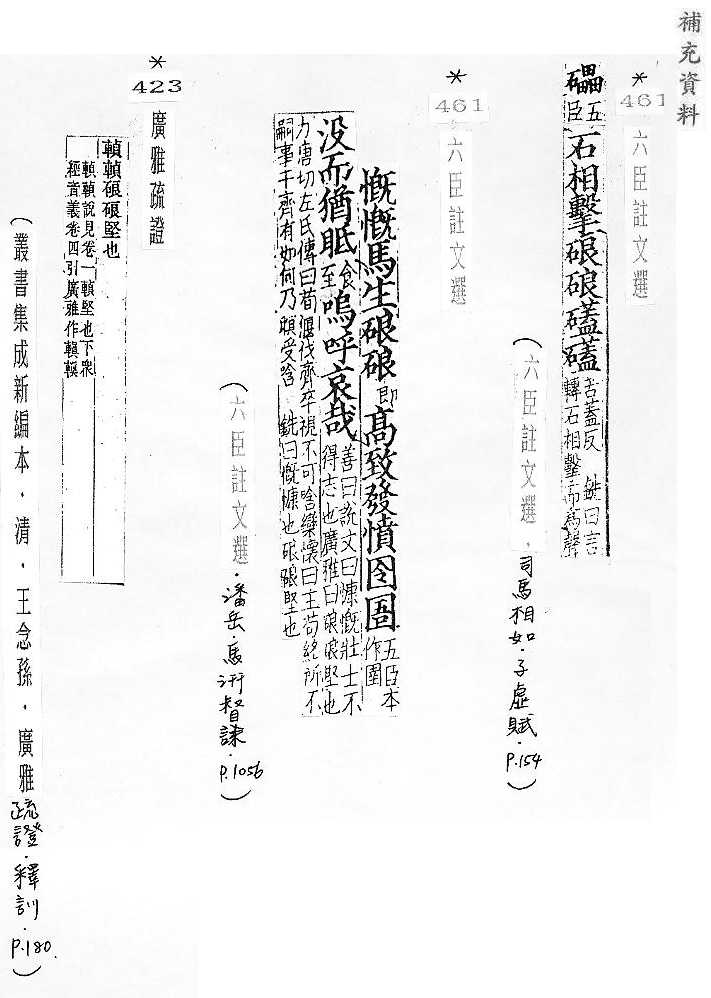 補充資料
* 461
六臣註文選
礧
五臣
石相擊硠硠礚礚
苦蓋反 銑曰言
轉石相擊而為聲
(六臣註文選.司馬相如.子虛賦.P.154)
* 461
六臣註文選
慨慨馬生硠硠
郎
高致發憤囹圄
五臣本
作圉
没而猶眂
食
至
嗚呼哀哉
善曰說文曰慷慨壯士不
得志也廣雅曰硠硠堅也
力唐切左氏傳曰荀偃伐齊卒視不可唅欒懷曰主苟終所不
嗣事于齊有如何乃瞑受唅 銑曰慨慷也硠硠堅也
(六臣註文選.潘岳.馬汧督誄.P.1056)
* 423
廣雅疏證
䩠䩠硠硠堅也
䩠䩠說見卷一䩠堅也下衆
經音義卷四引廣雅作
(叢書集成新編本.清.王念孫.廣雅疏證.釋訓.P.180.)